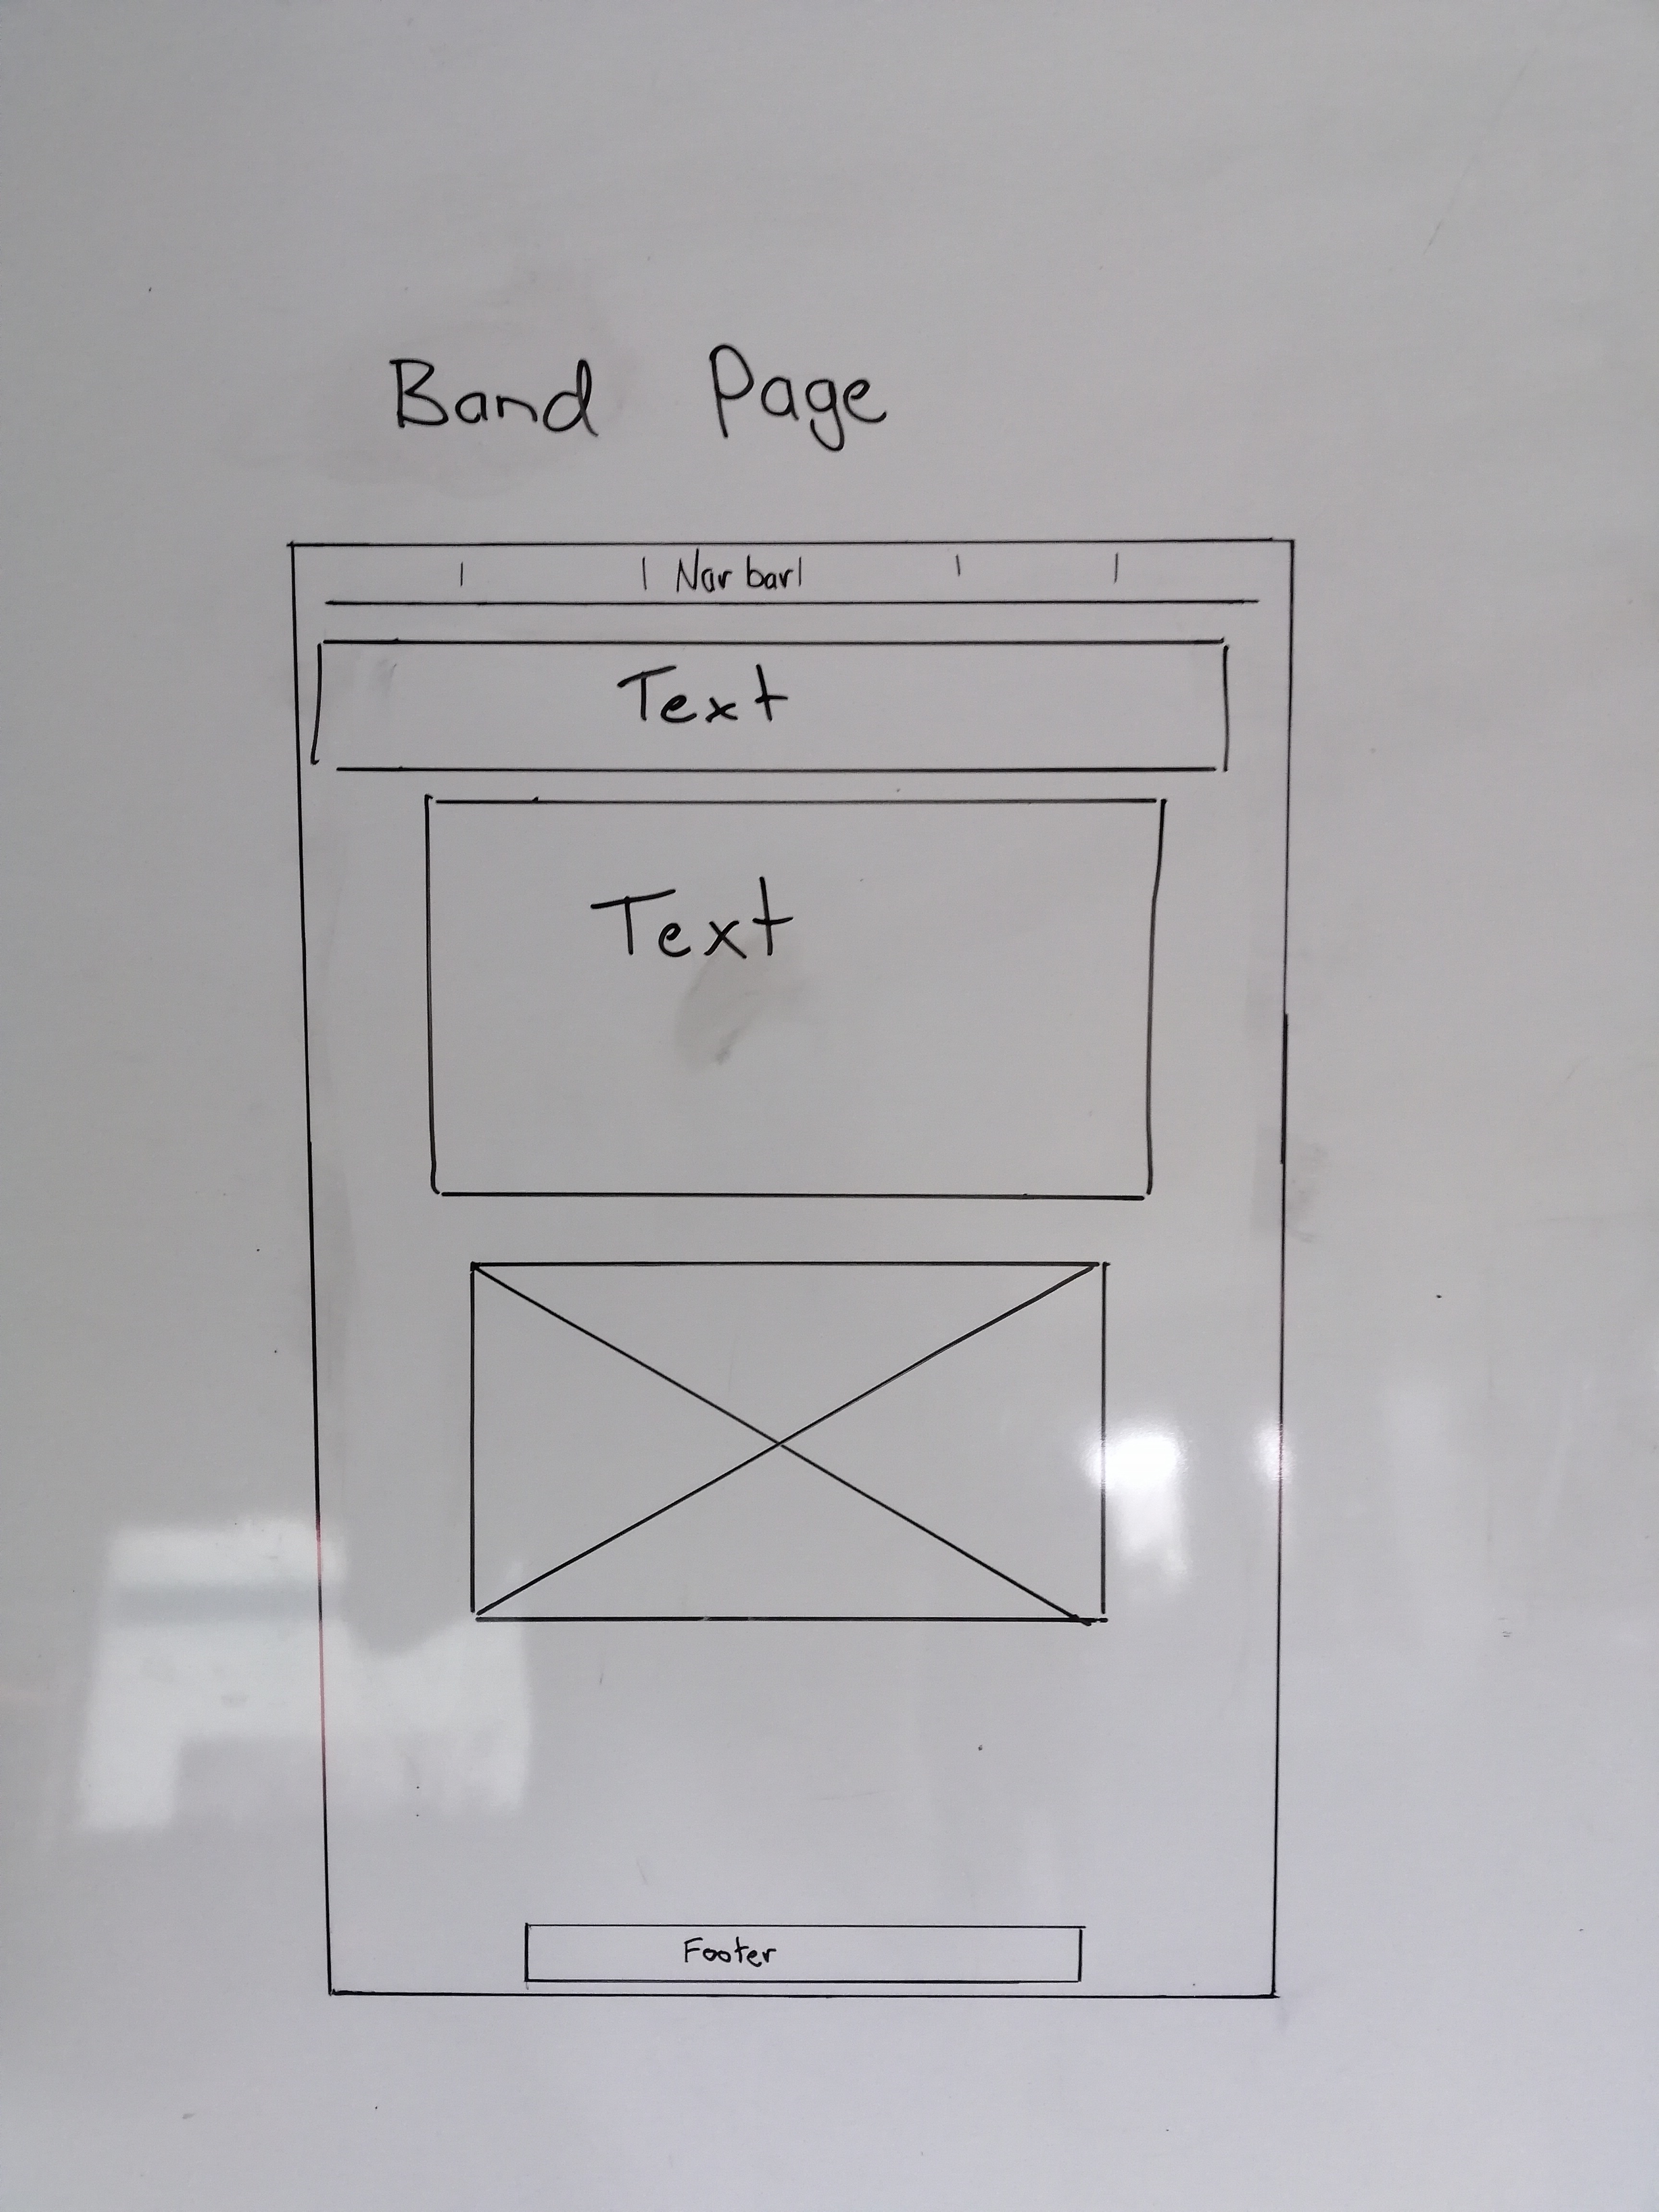 Band Page
Nav bar
Text
Text
Footer